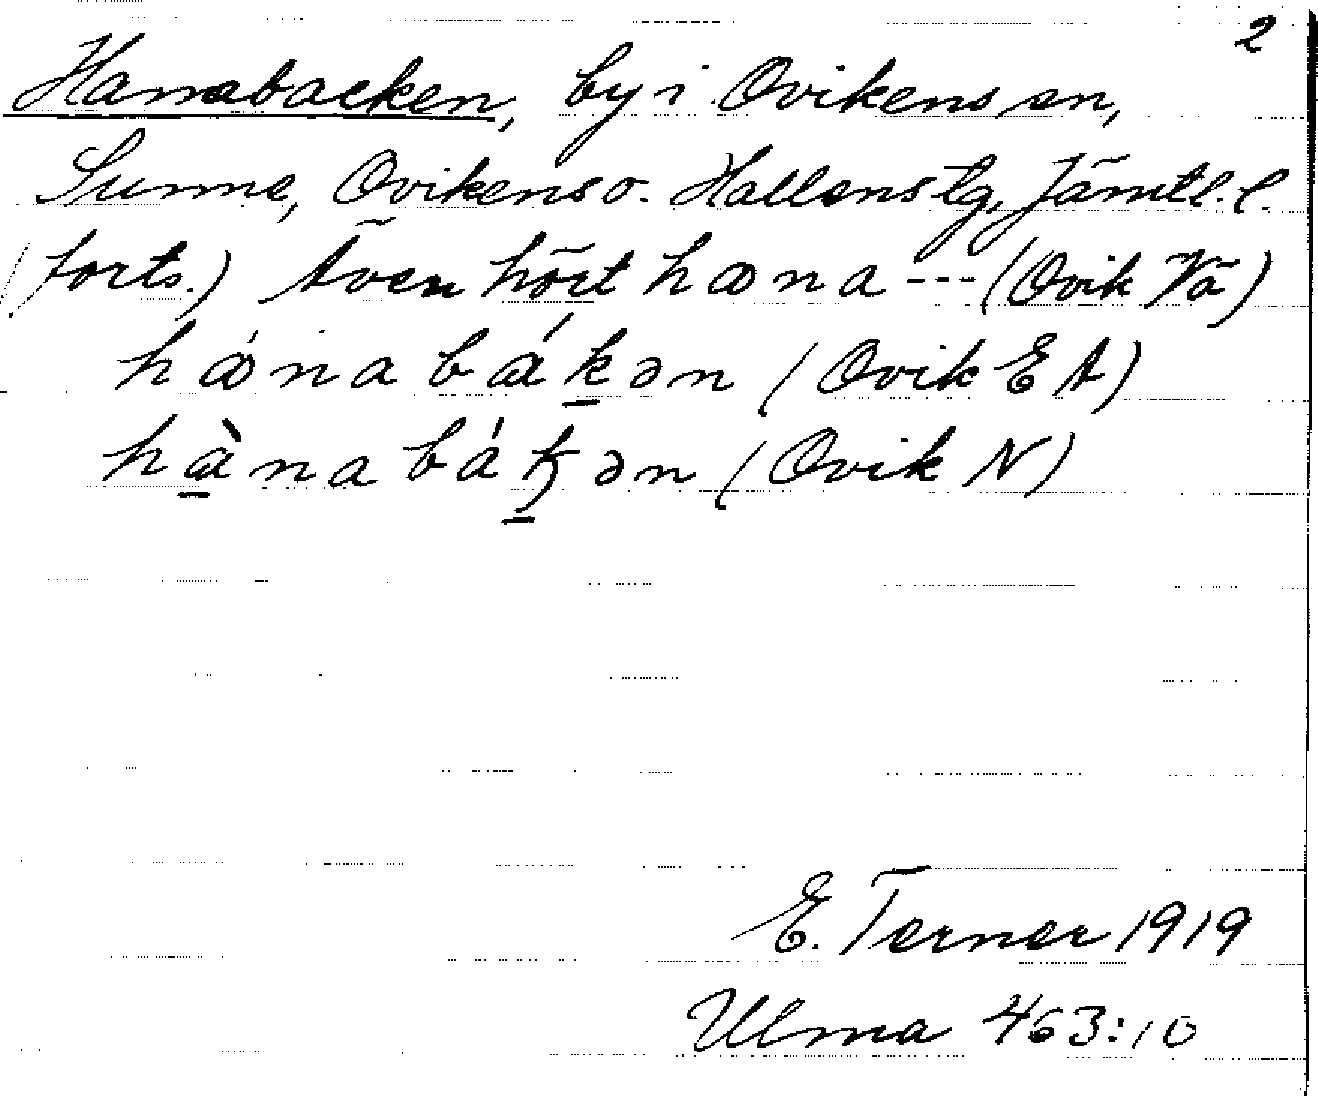 2
Hanabacken, by i Ovikens sn,
Sunne, Ovikens o. Hallens tg, Jämtl. l.
(forts.) Även hört hana --- (Ovik Vä)
hánabákən (Ovik E A)
hànabáꜧən (Ovik N)
E. Terner 1919
Ulma 463:10